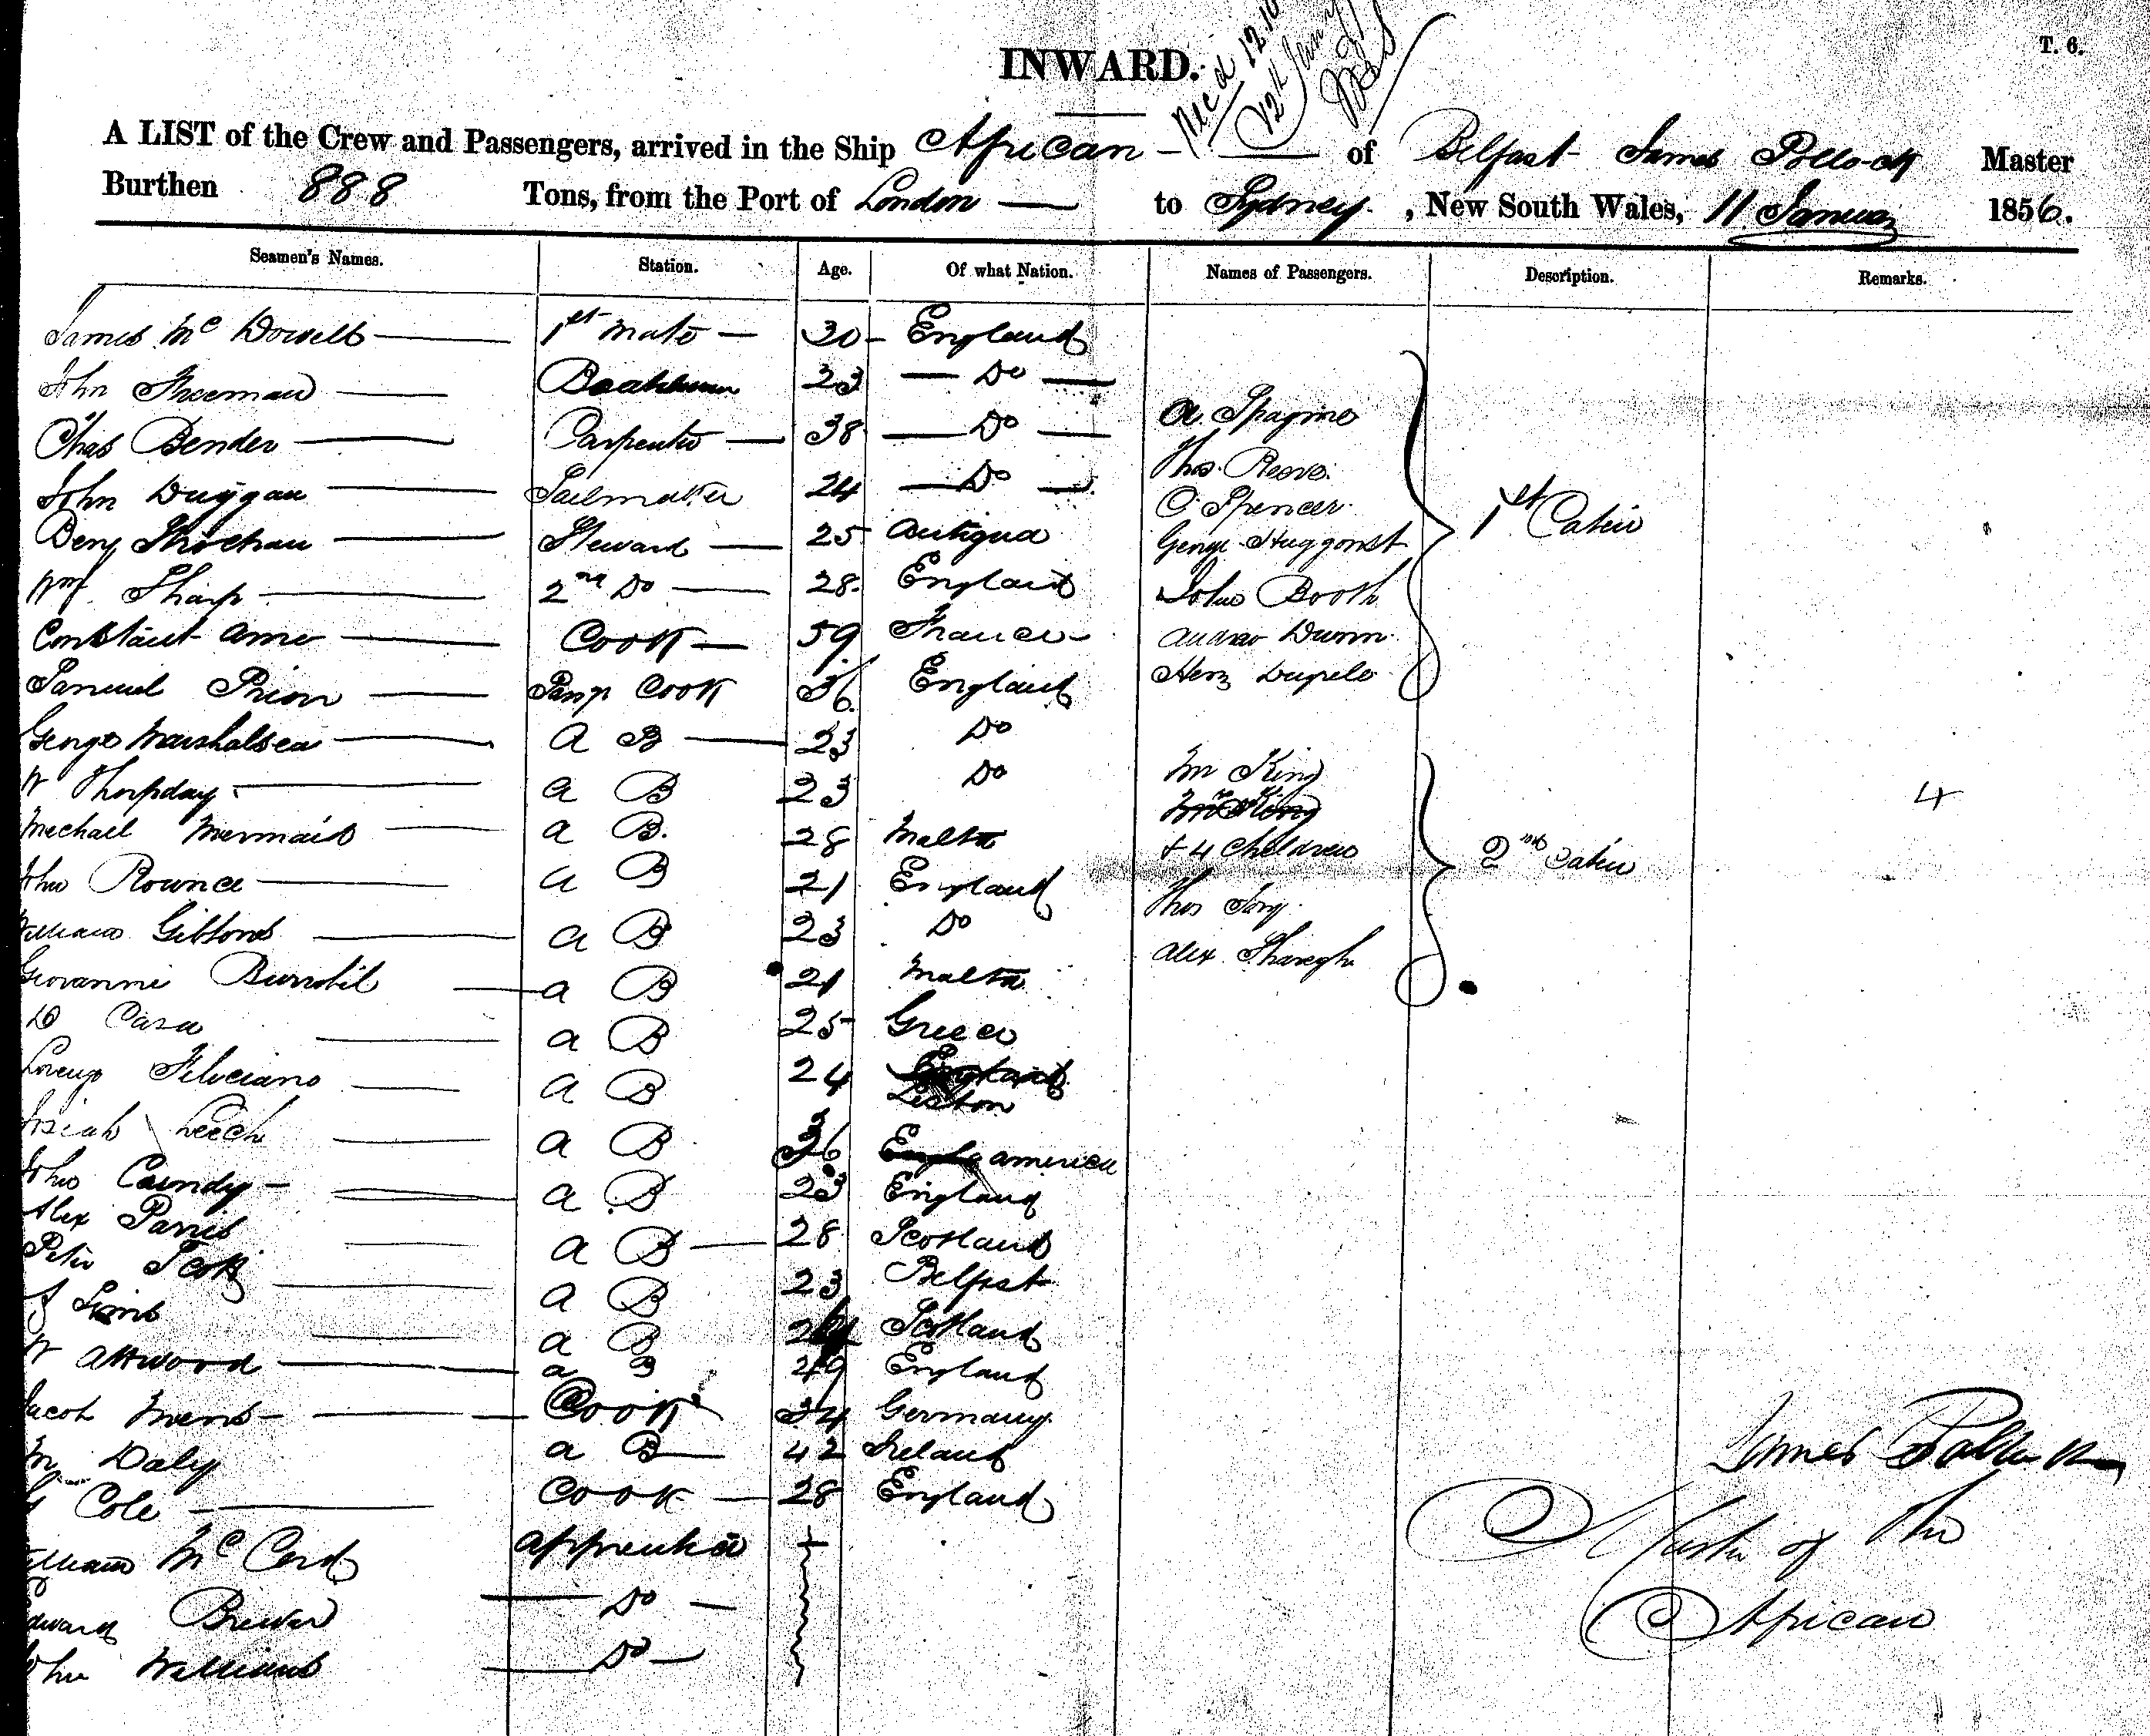 INWARD.
T. 6.
12th
A LIST of the Crew and Passengers, arrived in the Ship African of Belfast James Pollock Master
Burthen 888 Tons, from the Port of London to Sydney, New South Wales, 11 January 1856.
Seamen's Names. Station. Age. Of what Nation. Names of Passengers. Description. Remarks.
James Mc Dowell 1st Mate 30 England
John Freeman 23 Do
Chas Bender Carpenter 38 Do
John Duggan Sailmaker 24 Do
Benj Steward 25 Antigua
Wm Sharp 2nd Do 28 England
Constant Ame Cook 59 France
Samuel Prior Cook 36 England
George Marshalsea A B 23 Do
W Thorpday a B 23 Do
Mechael a B. 28 Malta
John Rounce a B 21 England
William Gibbons a B 23 Do
Giovanni a B 21 Malta
Casa a B 25 Greece
Lorenzo Feliciano a B 24 England Lisbon
Josiah Leech a B 36 america
John Cundy a B 23 England
Alex a B 28 Scotland
Peter Scott a B 23 Belfast
a B Scotland
W Attwood a B 49 England
Jacob Cook 34 Germany
M Daly a B 42 Ireland
Cole Cook 28 England
William Mc Cord apprentice
Edward Brewer Do
John Williams Do
A.
Thos. Reeve.
C. Spencer
George
John Booth
Andrew Dunn
1st Cabin
Mr King
Mrs King
+ 4 Children
Thos
Alex
2nd Cabin
4
James Pollock
Master of the
African